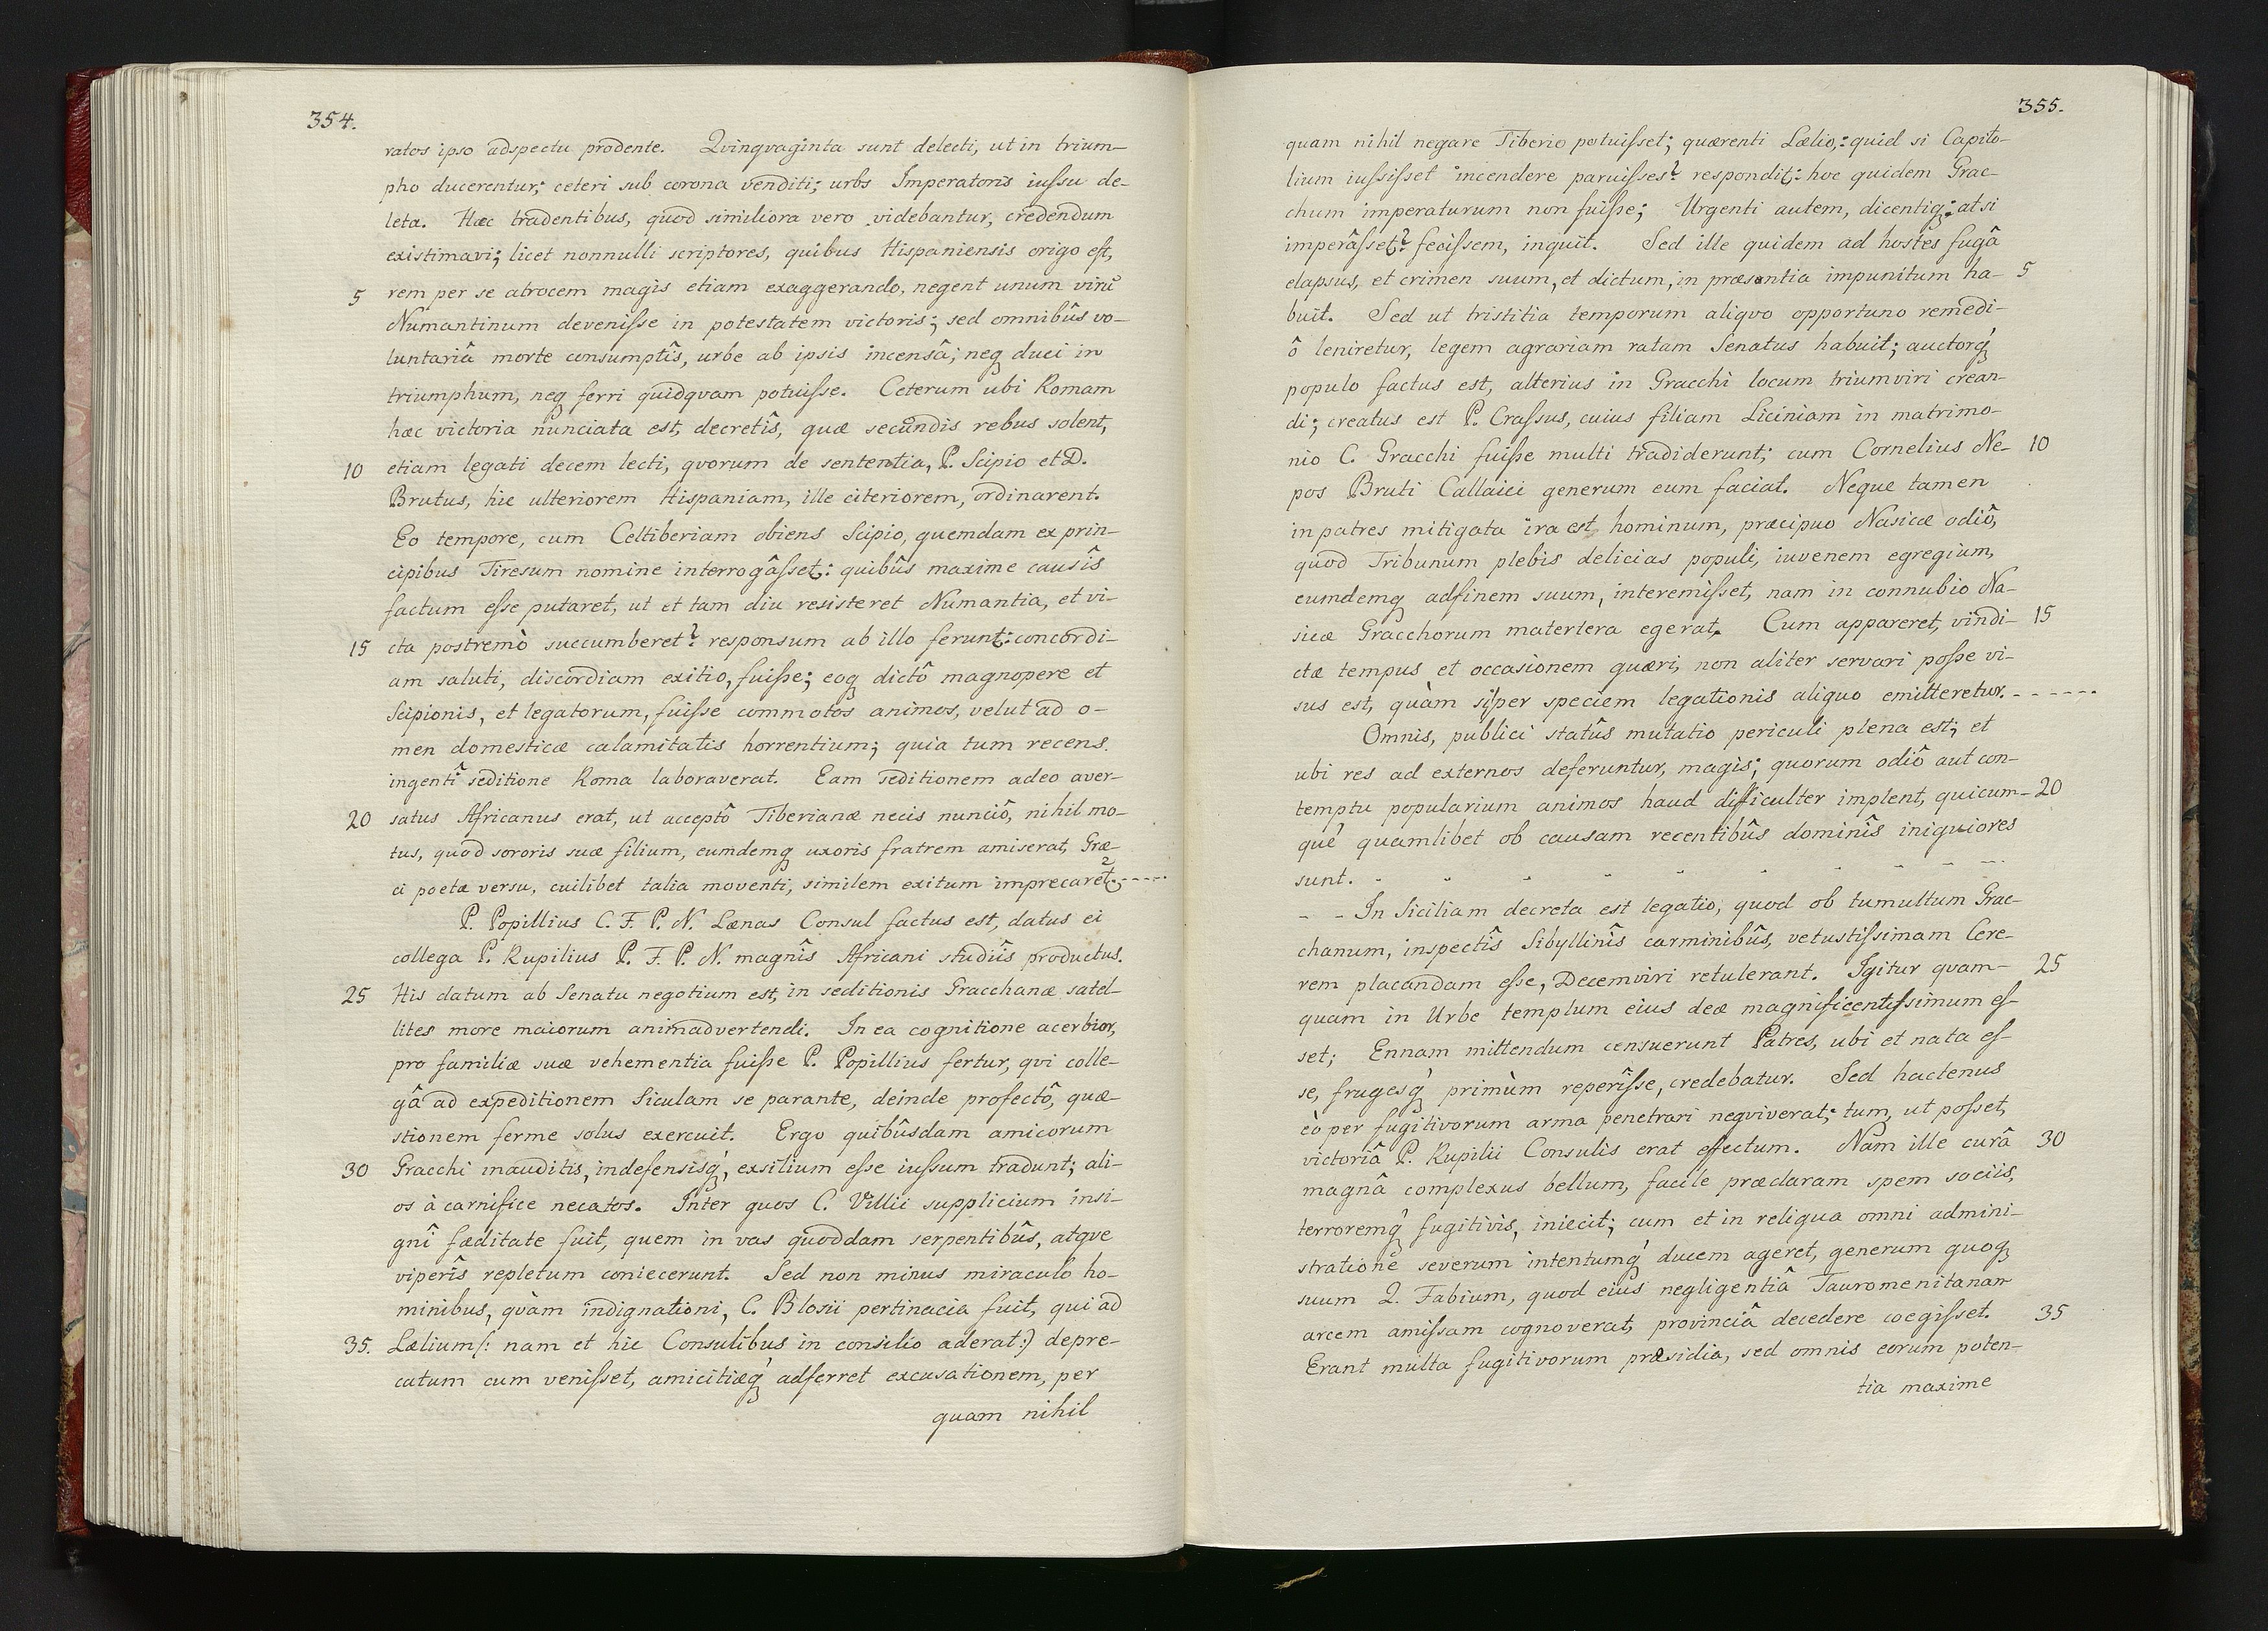 354.
ratos ipso adspectu prodente. Qvinqvaginta sunt delecti, ut in trium-
pho ducerentur; ceteri sub corona venditi; urbs Imperatoris iussu de-
leta. Hæc tradentibus, quod similiora vero videbantur, credendum
existimavi; licet nonnulli scriptores, quibus Hispaniensis origo est,
5 rem per se atrocem magis etiam exaggerando, negent unum virū
Numantinum devenisse in potestatem victoris; sed omnibûs vo-
luntariâ morte consumptîs, urbe ab ipsis incensâ; neq duci in
triumphum, neq ferri quidqvam potuisse. Ceterum ubi Romam
hæc victoria nunciata est, decretîs, quæ secundis rebus solent,
10 etiam legati decem lecti, qvorum de sententia, P. Scipio et D.
Brutus, hic ulteriorem Hispaniam, ille citeriorem, ordinarent.
Eo tempore, cum Celtiberiam obiens Scipio, quemdam ex prin-
cipibus Tiresum nomine interrogâsset: quibûs maxime causîs
factum esse putaret, ut et tam diu resisteret Numantia, et vi-
15 cta postremò succumberet? responsum ab illo ferunt: concordi-
am saluti, discordiam exitio, fuisse; eoq dictô magnopere et
Scipionis, et legatorum, fuisse commotos animos, velut ad o-
men domesticæ calamitatis horrentium; quia tum recens
ingentî seditione Roma laboraverat. Eam seditionem adeo aver-
20 satus Africanus erat, ut acceptô Tiberianæ necis nunciô, nihil mo-
tus, quod sororis suæ filium, eumdemq uxoris fratrem amiserat, Græ-
ci poetæ versu, cuilibet talia moventi, similem exitum imprecaret. - - - -
P. Popillius C. F. P. N. Lænas Consul factus est, datus ei
collega P. Rupilius P. F. P. N. magnîs Africani studiîs productus.
25 His datum ab Senatu negotium est, in seditionis Gracchanæ satel-
lites more maiorum animadvertendi. In ea cognitione acerbior,
pro familiæ suæ vehementia fuisse P. Popillius fertur, qvi colle-
gâ ad expeditionem Siculam se parante, deinde profectô, quæ-
stionem ferme solus exercuit. Ergo quibûsdam amicorum
30 Gracchi inauditis, indefensisq, exsilium esse iussum tradunt; ali-
os à carnifice necatos. Inter quos C. Villii supplicium insi-
gnî fæditate fuit, quem in vas quoddam serpentibûs, atqve
viperîs repletum coniecerunt. Sed non minus miraculo ho-
minibus, qvàm indignationi, C. Blosii pertinacia fuit, qui ad
35. Lælium (: nam et hic Consulibus in consilio aderat:) depre-
catum cum venisset, amicitiæq adferret excusationem, per
quam nihil
355.
quam nihil negare Tiberio potuisset; quærenti Lælio,: quid si Capito-
lium iussisset incendere paruisses? respondit: hoc quidem Grac-
chum imperaturum non fuisse; Urgenti autem, dicentiq: at si
imperâsset? fecissem, inquit. Sed ille quidem ad hostes fugâ
elapsus, et crimen suum, et dictum, in præsentia impunitum ha- 5
buit. Sed ut tristitia temporum aliqvo opportuno remedi-
ô leniretur, legem agrariam ratam Senatus habuit; auctorq
populo factus est, alterius in Gracchi locum triumviri crean-
di; creatus est P. Crassus, cuius filiam Liciniam in matrimo-
nio C. Gracchi fuisse multi tradiderunt; cum Cornelius Ne- 10
pos Bruti Callaici generum eum faciat. Neque tamen
in patres mitigata ira est hominum, præcipuo Nasicæ odiô,
quod Tribunum plebis delicias populi, iuvenem egregium,
eumdemq adfinem suum, interemisset, nam in connubio Na-
sicæ Gracchorum matertera egerat. Cum appareret, vindi- 15
ctæ tempus et occasionem quæri, non aliter servari posse vi-
sus est, quàm si per speciem legationis aliquo emitteretur. - - - - - -
Omnis, publici statûs mutatio periculi plena est; et
ubi res ad externos deferuntur, magis; quorum odiô aut con-
temptu popularium animos haud difficulter implent, quicum- 20
quê quamlibet ob causam recentibûs dominîs iniquiores
sunt. - - - - - - - -
- - In Siciliam decreta est legatio, quod ob tumultum Grac-
chanum, inspectîs Sibyllinîs carminibûs, vetustissimam Cere-
rem placandam esse, Decemviri retulerant. Igitur qvam- 25
quam in Urbe templum eius deæ magnificentissimum es-
set; Ennam mittendum censuerunt Patres, ubi et nata es-
se, frugesq primùm reperîsse, credebatur. Sed hactenus
èò per fugitivorum arma penetrari neqviverat; tum, ut posset,
victoriâ P. Rupilii Consulis erat effectum. Nam ille curâ 30
magnâ complexus bellum, facile præclaram spem sociis,
terroremq fugitivis, iniecit; cum et in reliqua omni admini-
stratione severum intentumq ducem ageret, generum quoq
suum Q. Fabium, quod eius negligentiâ Tauromenitanam
arcem amissam cognoverat, provinciâ decedere coegisset. 35
Erant multa fugitivorum præsidia, sed omnis eorum poten-
tia maxime